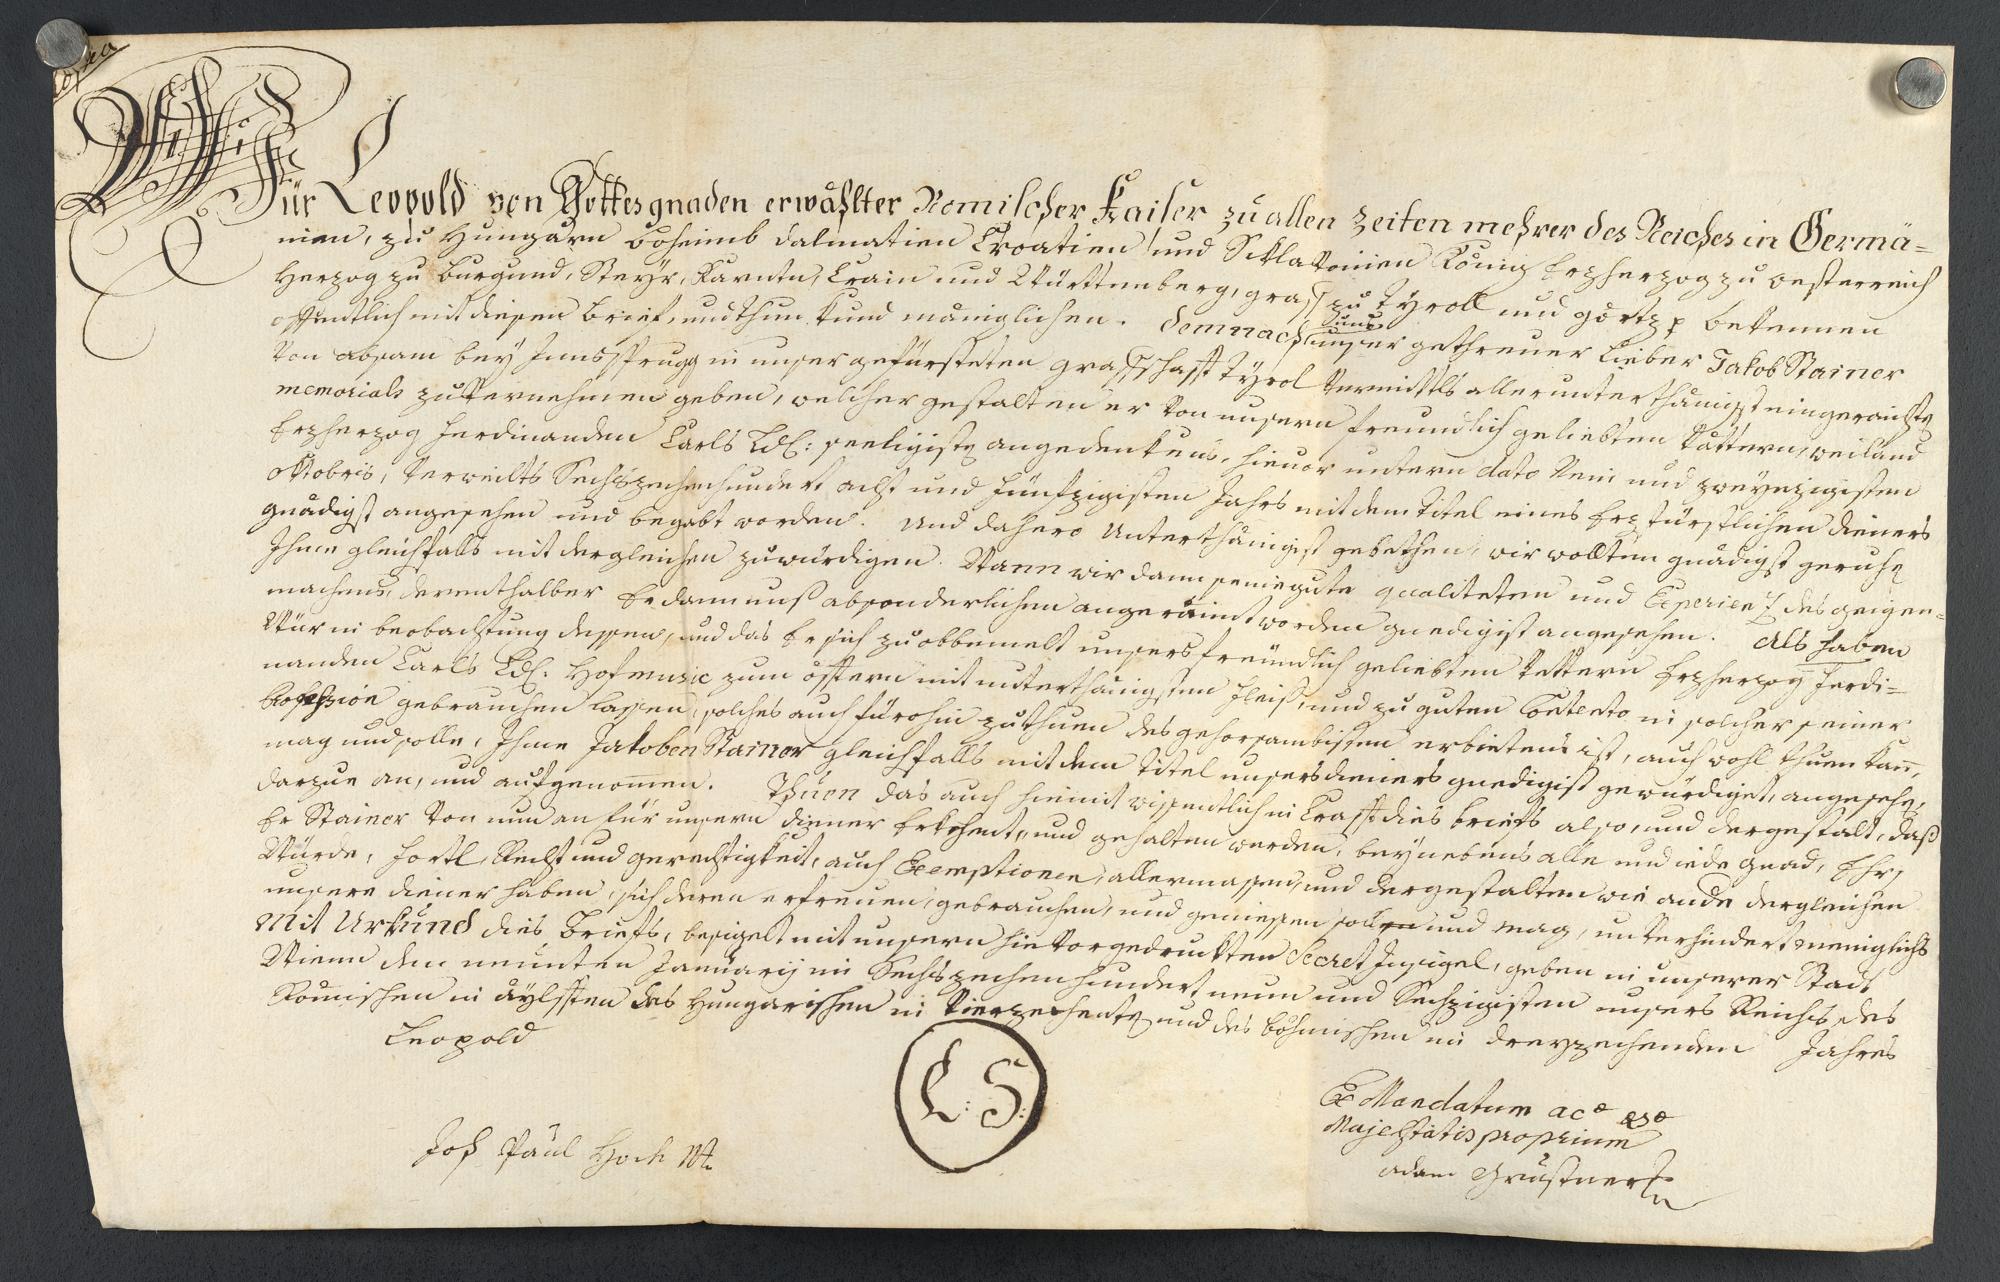 Copia
Wür Leopold von Gottes gnaden erwählter Romischer Kaiser zu allen Zeiten mehrer des Reiches in Germä=
nien, zu Hungarn boheimb Dalmatien Croatien und Scklavonien König Erzherzog zu oesterreich
Herzog zu Burgund, Steyr, Kärntn, Crain und Württemberg, graff zu Tyroll und görtz p bekennen
offentlich mit diesen brief, und thun kund mäniglichen. Demnach uns unser gethreuer lieber Jakob Stainer
von absam bey Innssprugg in unser gefürsteten graffschafft Tyrol vermittls allerunterthänigst eingeraichte
memorials zu vernehmen geben, welcher gestalten er von unsern freundlich geliebten vättern, weiland
Erzherzog Ferdinanden Carls Ld: seeligiste angedenkens, hievor untern dato Nein und zweynzigisten
oktobris, verweilts Sechszechenhundert acht und fünfzigisten Jahrs mit dem titel eines Erzfürstlichen dieners
gnädigst angesehen und begabt worden. Und dahero Unterthänigist gebethen, wir wollten gnädigst geruhe
Ihme gleichfalls mit dergleichen zuwürdigen. Wann wir dann seine gute qualiteten und Experienz des geigen=
machens, derenthalber Er dann unß absonderlichen angerüemt worden gnedigist angesehen. Als haben
Wür in beobachtung dessen, und das Er sich zu obbemelt unsers freündlich geliebten vettern Erzherzog Ferdi=
nanden Carls Ld: Hofmusic zum öftern mit unterthänigsten fleiß, und zu guten Contento in solcher seiner
Profession gebrauchen lassen, solches auch fürohin zuthuen des gehorsambisten erbietens ist, auch wohl thuen kan,
mag und solle, Ihme Jakoben Stainer gleichfalls mit dem titel unsers dieners gnedigist gewürdiget, angesehe,
darzue an, und aufgenomen. Thüen das auch hiemit wissentlich in Crafft dies briefs also, und dergestalt, daß
Er Stainer von nun an für unsern diener Erkhent, und gehalten werden, beynebens alle und iede gnad, Ehr,
Würde, Forthl, Recht und gerechtigkeit, auch Exemptionen, allermassen, und dergestalten wie ande dergleichen
unsere diener haben, sich deren erfreuen, gebrauchen, und geniessen sollen und mag, unverhindert meniglichs
Mit Urkund dies briefs, besigelt mit unsern hievorgedruckten Secret Insigel, geben in unserer Stadt
Wienn den neunten Januarij im Sechszechenhundert neun und Sechzigisten unsers Reichs, des
Römischen in äylfften des Hungarischen in Vierzechente und des böhmischen im dreyzechenden Jahrs
Leopold
L: S:
Joh Paul Hoch
Ex Mandatum
Majestatis proprium
adam